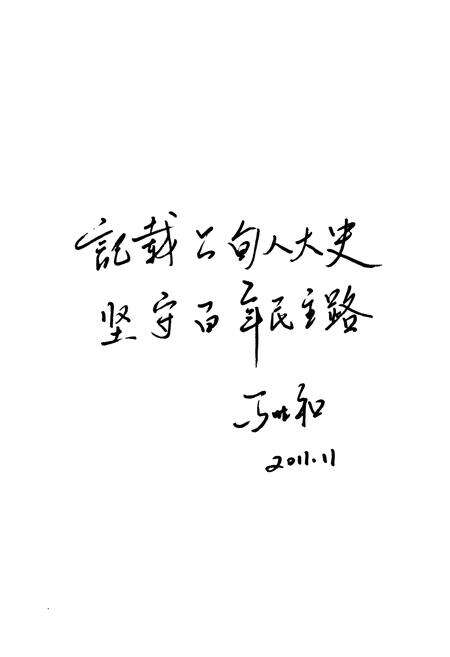 記载六旬人大史
坚守百年民主路
馬世和
2011.11